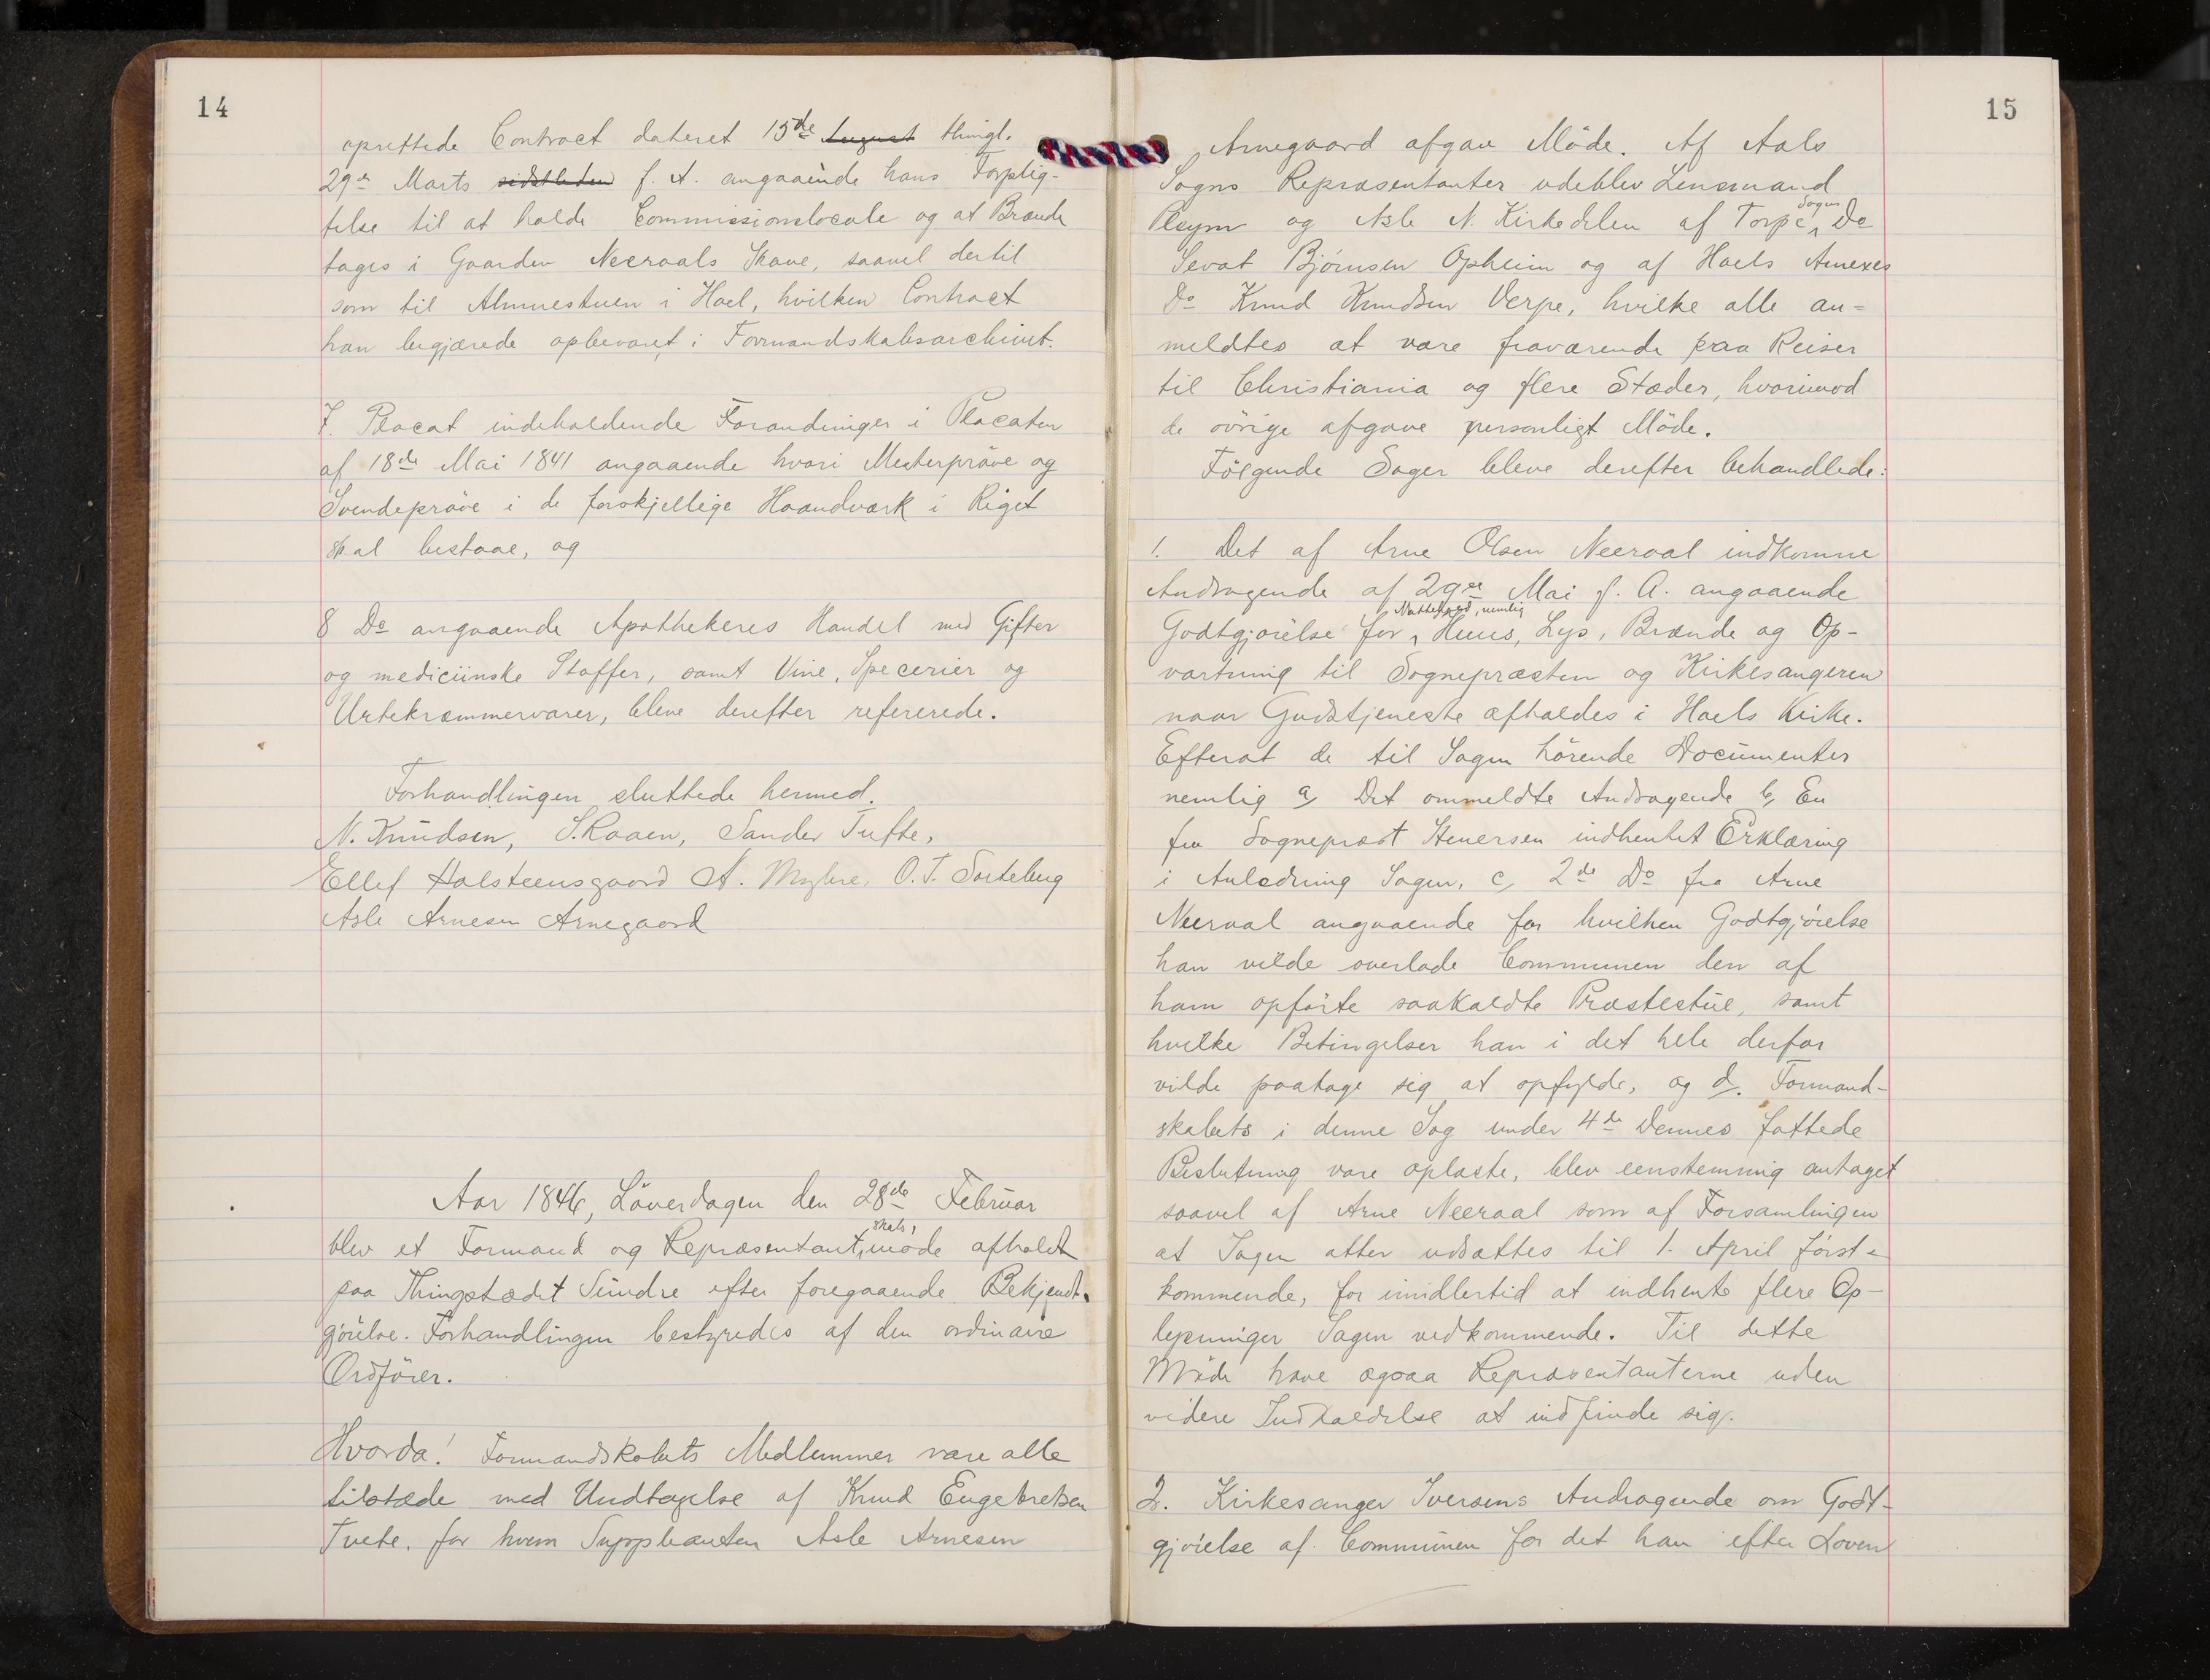 14
oprettede Contract dateret 15de August thingl.
29de Marts sidstleden f. A. angaaende hans Forplig-
telse til at holde Commissionslocale og at Brænde
tages i Gaarden Neeraals Skove, saavel dertil
som til Almuestuen i Hoel, hvilken Contract
han begjærede opbevaret i Formandskabsarchivet.
7. Placat indeholdende Forandringer i Placaten
af 18de Mai 1841 angaaende hvori Mesterprøve og
Svendeprøve i de forskjellige Haandværk i Riget
skal bestaae, og
8 Do angaaende Apothekeres Handel med Gifter
og mediciinske Stoffer, samt Vine, Specerier og
Urtekræmmervarer, bleve derefter refererede.
Forhandlingen sluttede hermed.
N. Knudsen, S. Raaen, Sander Tufte,
Ellef Halsteensgaard A. Myhre, O. T. Sorteberg
Asle Arnesen Arnegaard
Aar 1846, Löverdagen den 28de Februar
blev et Formand og Repræsentant, skabs, möde afholdt
paa Thingstædet Sundre efter foregaaende Bekjendt-
gjörelse. Forhandlingen bestyredes af den ordinaire
Ordförer.
Hvorda! Formandskabets Medlemmer vare alle
tilstæde med Undtagelse af Knud Engebretsen
Tvete, for hvem Suppleanten Asle Arnesen
15
Arnegaard afgav Möde. Af Aals
Sogns Repræsentanter udeblev Lensmand
Pleym og Asle N. Kirkedelen af Torpe Sogns Do
Sevat Bjørnsen Opheim og af Hoels Annexes
Do Knud Knudsen Verpe, hvilke alle an-
meldtes at være fraværende paa Reiser
til Christiania og flere Stæder, hvorimod
de övrige afgave personligt Möde.
Fölgende Sager bleve derefter behandlede:
1. Det af Arne Olsen Neeraal indkomne
Andragende af 29de Mai f. A. angaaende
Godtgjörelse for Nattehold, nemlig Huus, Lys, Brænde og Op-
vartning til Sognepræsten og Kirkesangeren
naar Gudstjeneste afholdes i Hoels Kirke.
Efterat de til Sagen hörende Documenter
nemlig a, Det ommeldte Andragende b, En
fra Sognepræst Stenersen indhentet Erklæring
i Anledning Sagen, c, 2de Do fra Arne
Neeraal angaaende for hvilken Godtgjörelse
han vilde overlade Communen den af
ham opförte saakaldte Præstestue, samt
hvilke Betingelser han i det hele derfor
vilde paatage sig at opfylde, og d. Formand-
skabets i denne Sag under 4de Dennes fattede
Beslutning vare oplæste, blev eenstemmig antaget
saavel af Arne Neeraal som af Forsamlingen
at Sagen atter udsættes til 1. April först-
kommende, for imidlertid at indhente flere Op-
lysninger Sagen vedkommende. Til dette
Möde have ogsaa Repræsentanterne uden
videre Indkaldelse at indfinde sig.
2. Kirkesanger Iversens Andragende om Godt-
gjörelse af Communen for det han efter Loven